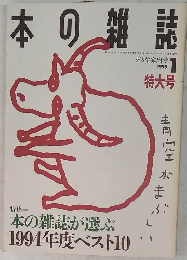 本の雑誌
1
特大号
青空がまぶしい
特集=
本の雑誌が選ぶ
1994年度ベスト10